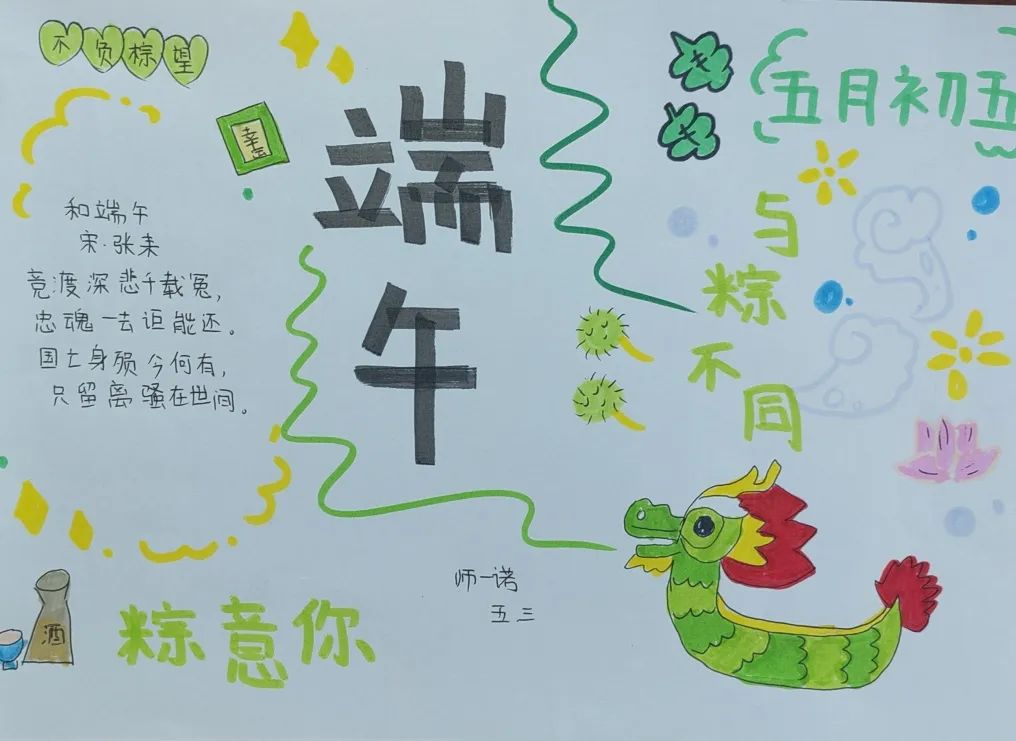 不负粽望
幸
端
午
五月初五
与
粽
不
同
和端午
宋·张耒
竞渡深悲千载冤,
忠魂一去讵能还。
国亡身殒今何有,
只留离骚在世间。
师一诺
五三
酒
粽意你